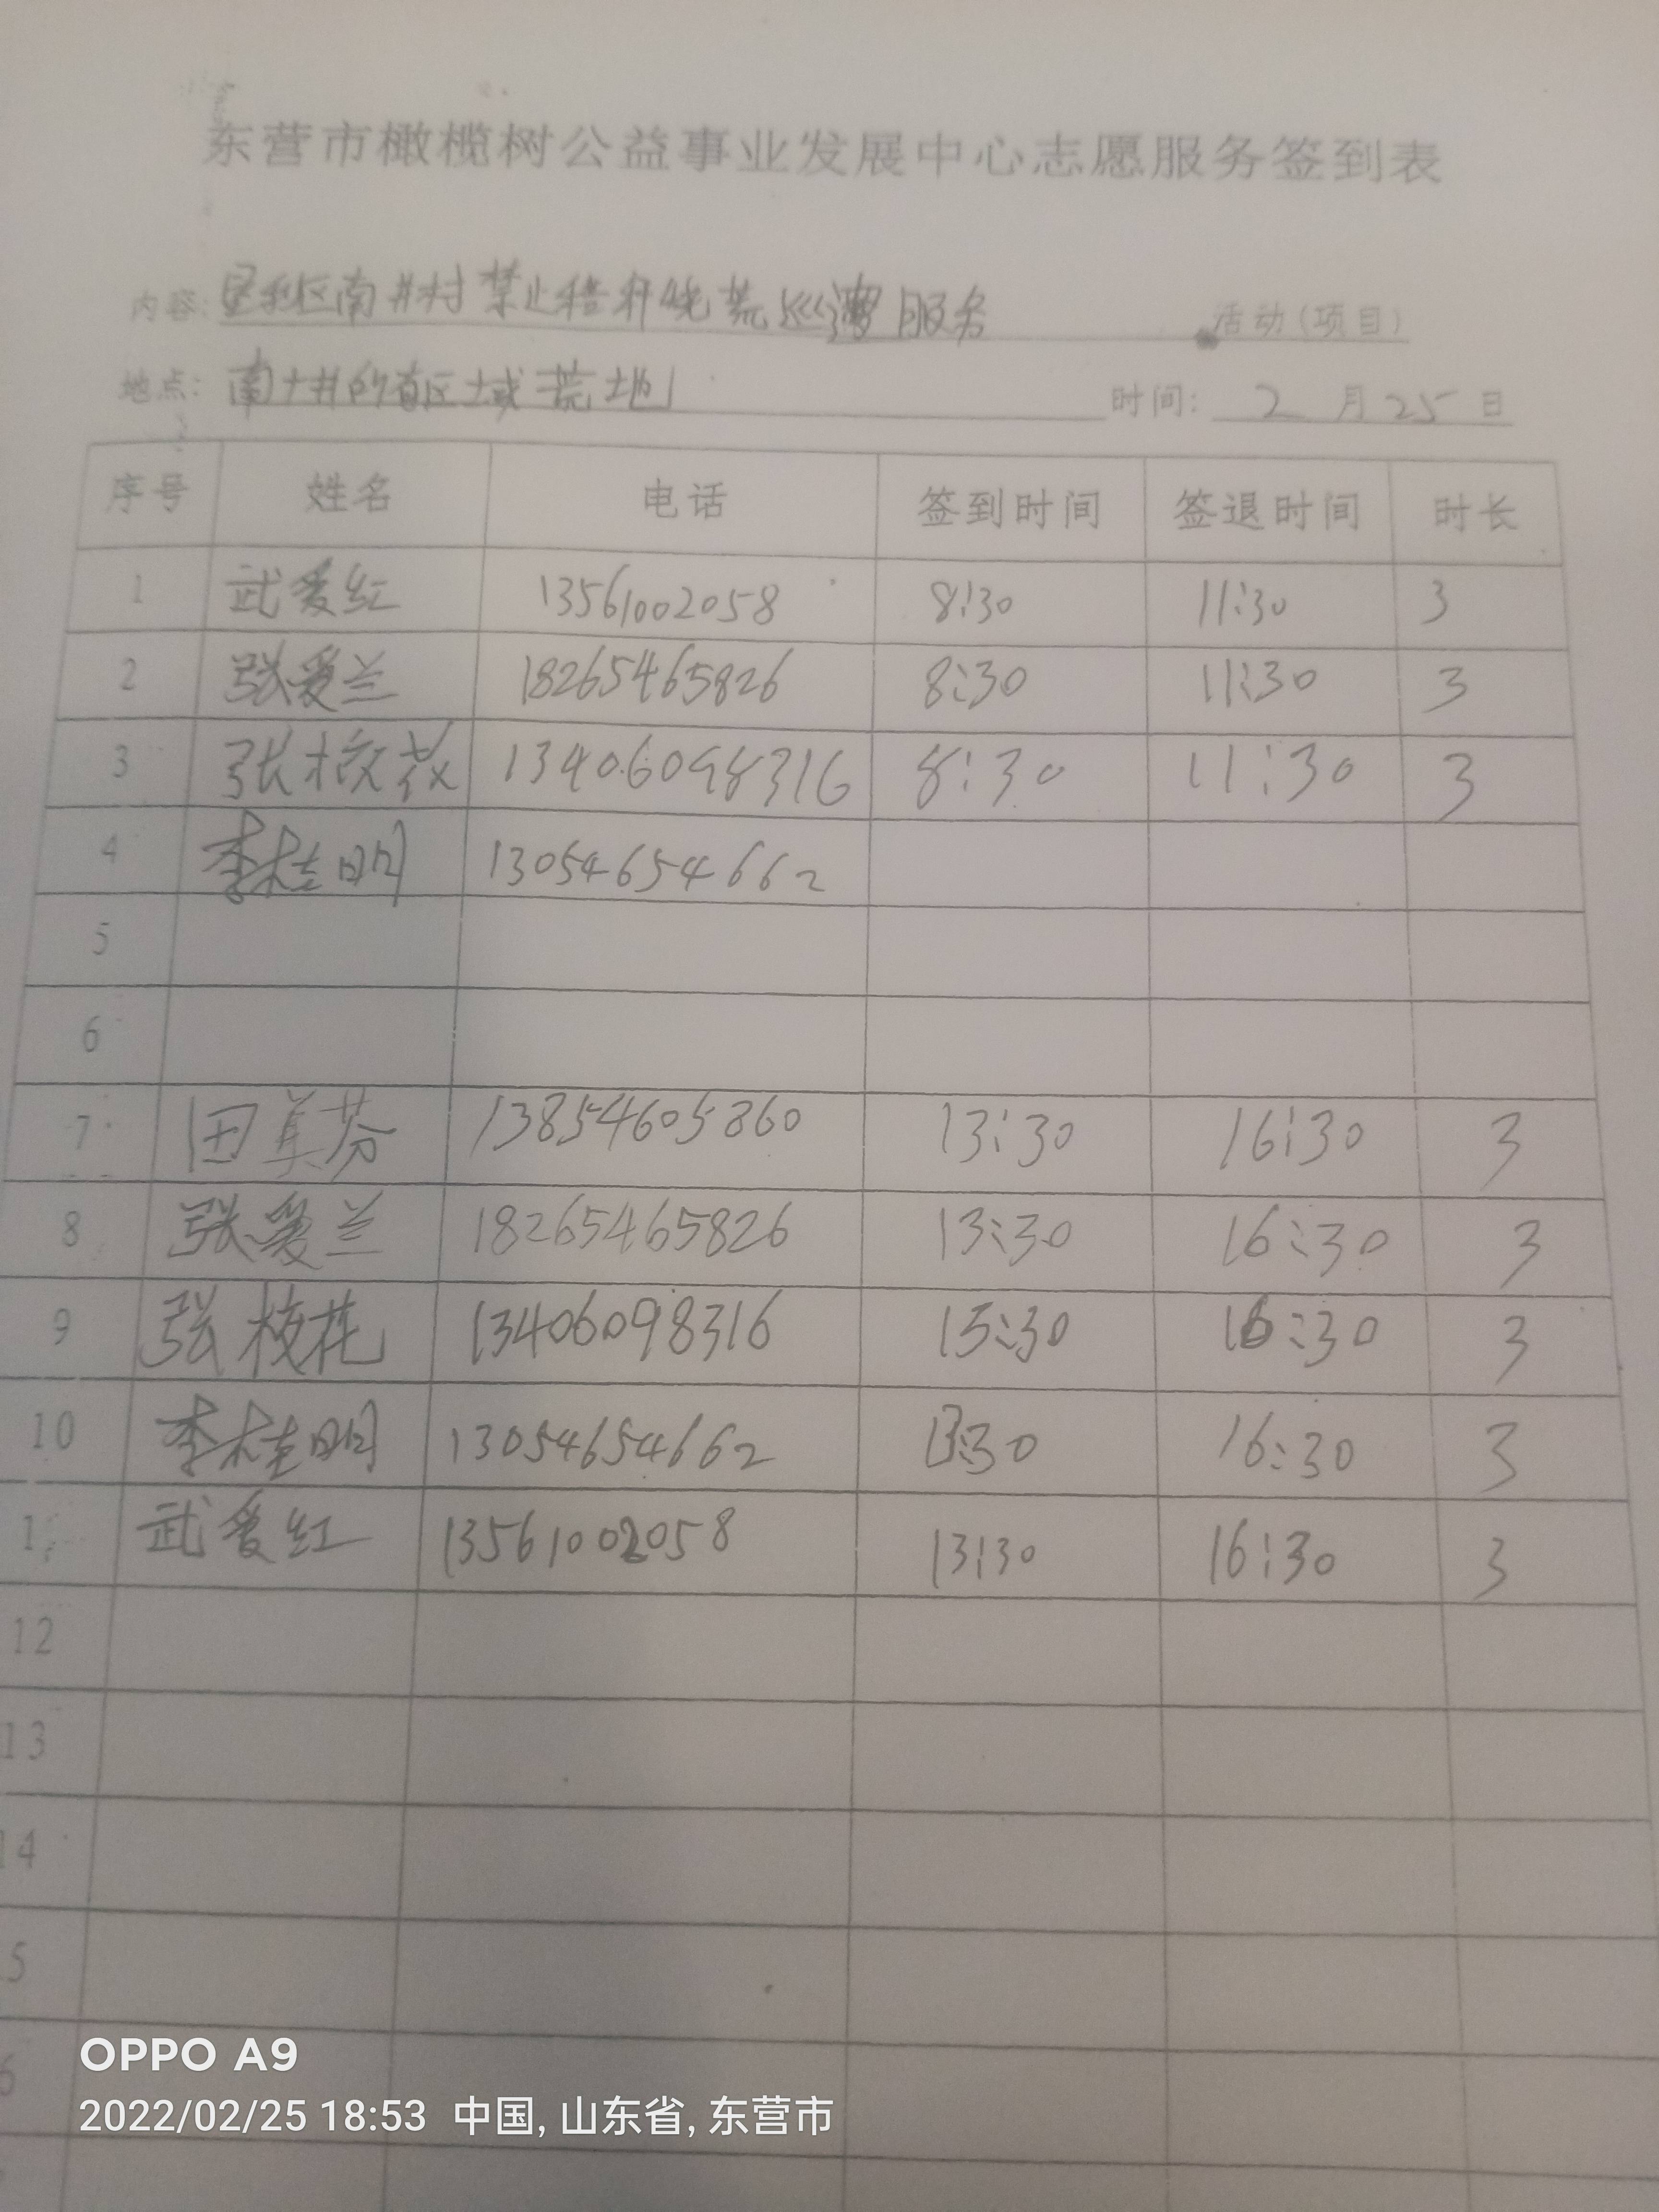 东营市橄榄树公益事业发展中心志愿服务签到表
内容: 垦利区南井村禁止秸秆烧荒巡逻服务 活动(项目)
地点: 南十井的省区域荒地 时间: 2 月 25 日
序号 姓名 电话 签到时间 签退时间 时长
1 武爱红 13561002058 8:30 11:30 3
2 张爱兰 18265465826 8:30 11:30 3
3 张校花 13406098316 8:30 11:30 3
4 李桂明 13054654662
5
6
7 田美芬 13854605860 13:30 16:30 3
8 张爱兰 18265465826 13:30 16:30 3
9 张校花 13406098316 13:30 16:30 3
10 李桂明 13054654662 13:30 16:30 3
1 武爱红 13561002058 13:30 16:30 3
12
13
14
5
6
OPPO A9
2022/02/25 18:53 中国, 山东省, 东营市